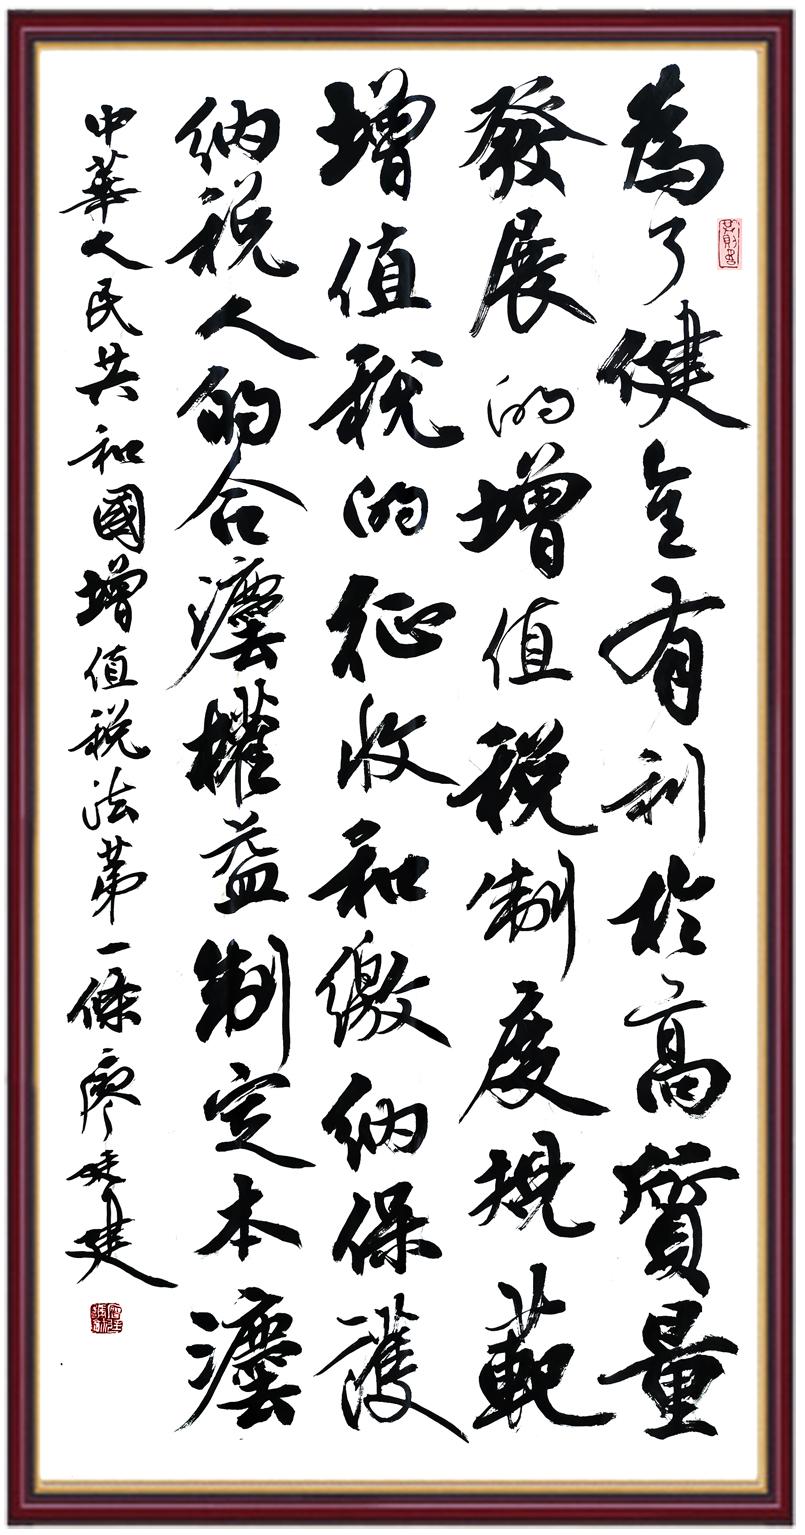 為了健全有利於高質量
發展的增值税制度規範
增值税的征收和繳納保護
納税人的合灋權益制定本灋
中華人民共和國增值税法第一條 廖建